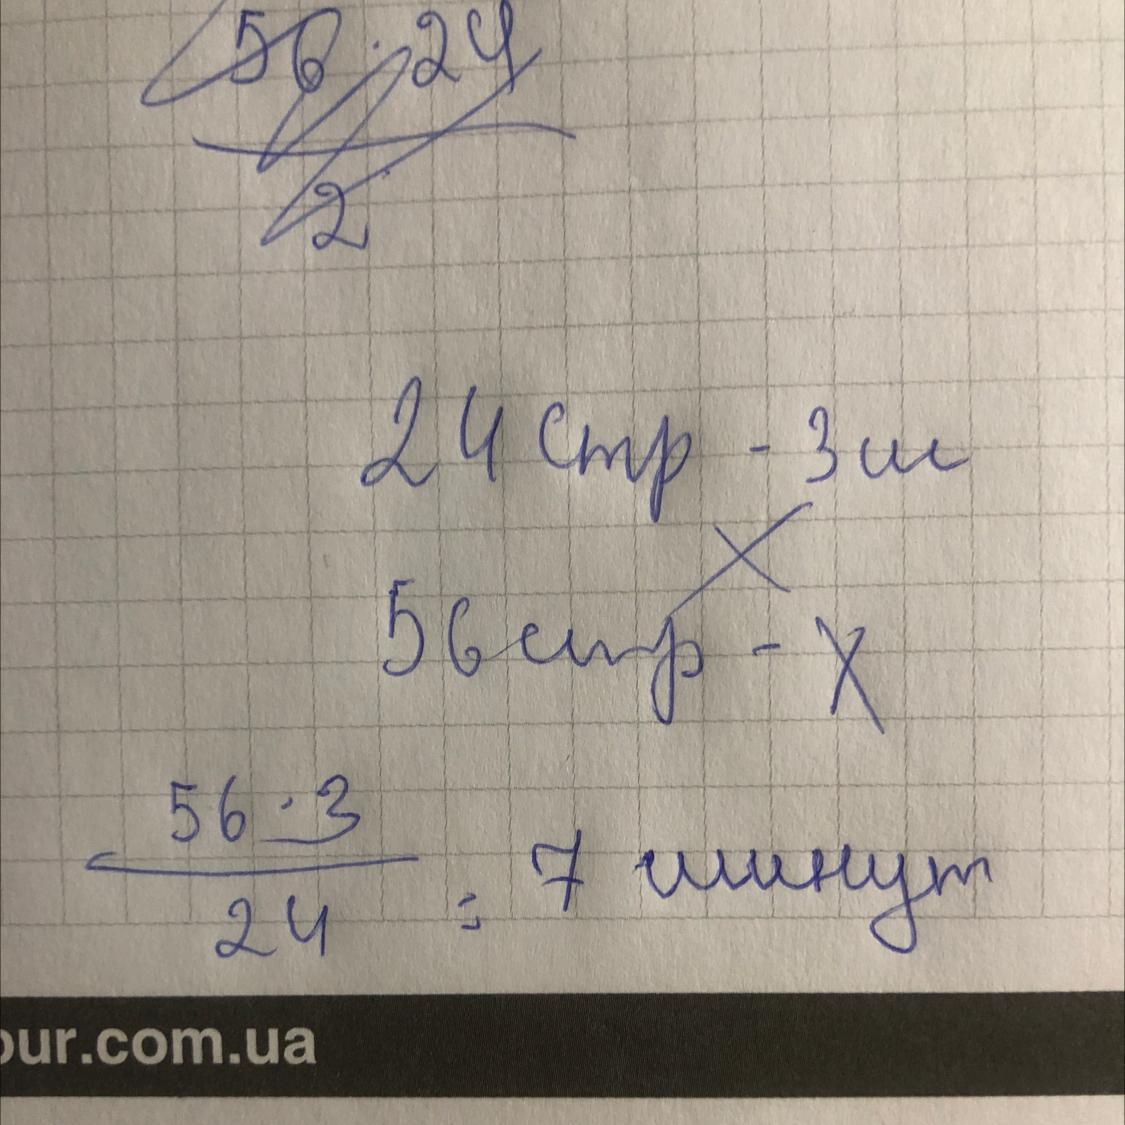 56 · 24
2
24 стр - 3 м
56 стр - х
56 · 3
24
= 7 минут
our.com.ua